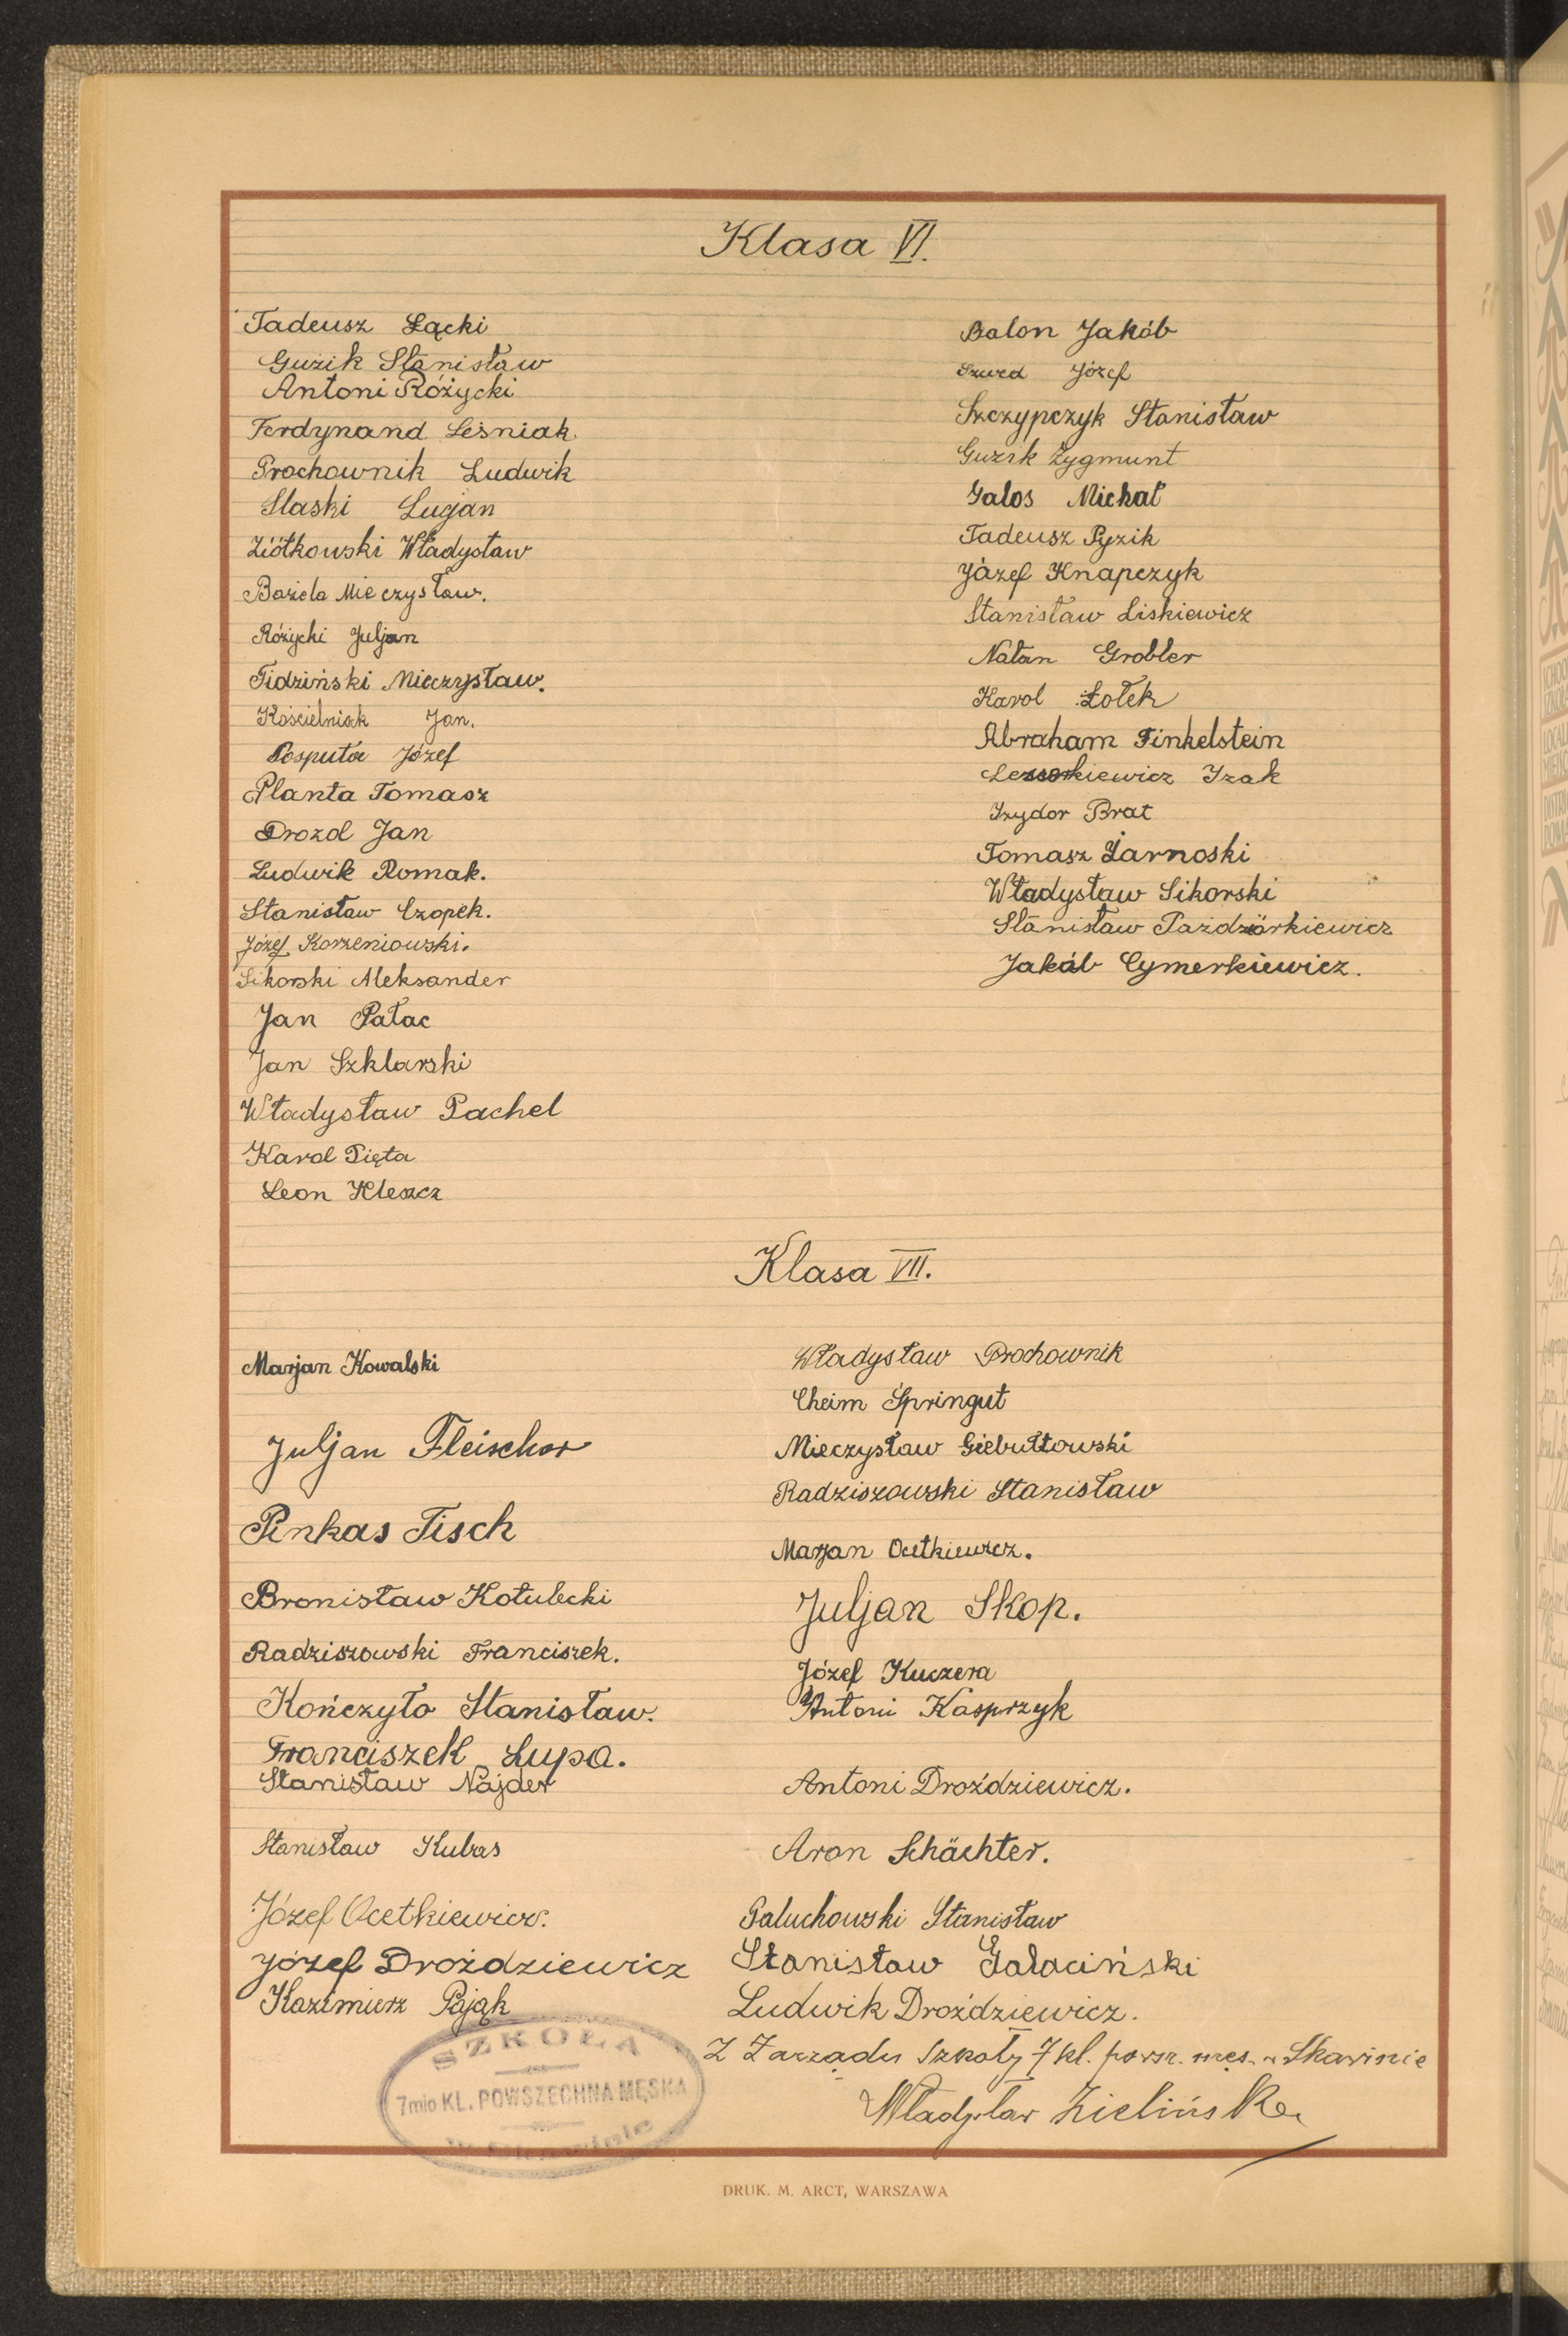 Klasa VI.
Tadeusz Łącki
Guzik Stanisław
Antoni Różycki
Ferdynand Leśniak
Prochownik Ludwik
Slaski Lucjan
Ziółkowski Władysław
Bażela Mieczysław.
Różycki Juljan
Fidziński Mieczysław.
Kościelniak Jan.
Pospuła Józef
Planta Tomasz
Drozd Jan
Ludwik Romak.
Stanisław Czopek.
Józef Korzeniowski.
Sikorski Aleksander
Jan Pałac
Jan Szklarski
Władysław Pachel
Karol Pięta
Leon Kleszcz
Balon Jakób
Szwed Józef
Szczypczyk Stanisław
Guzik Zygmunt
Galos Michał
Tadeusz Pyzik
Józef Knapczyk
Stanisław Liskiewicz
Natan Grobler
Karol Łołek
Abraham Finkelstein
Izak
Izydor Brat
Tomasz Żarnoski
Władysław Sikorski
Stanisław Paździörkiewicz
Jakób Cymerkiewicz.
Klasa VII.
Marjan Kowalski
Juljan Fleischer
Pinkas Fisch
Bronisław Kotulecki
Radziszowski Franciszek.
Kończyło Stanisław.
Franciszek Lupa.
Stanisław Najder
Stanisław Kubas
Józef Ocetkiewicz.
Józef Droździewicz
Kazimierz Pająk
Władysław Prochownik
Cheim Springut
Mieczysław Giebułtowski
Radziszowski Stanisław
Marjan Ocetkiewicz.
Juljan Skop.
Józef Kuczera
Antoni Kasprzyk
Antoni Droździewicz.
Aron Schächter.
Paluchowski Stanisław
Stanisław Gałaciński
Ludwik Droździewicz.
Z Zarządu Szkoły 7 kl. powsz. męs. w Skawinie
Władysław Zieliński
SZKOŁA
7mio KL. POWSZECHNA MĘSKA
w Skawinie
DRUK. M. ARCT, WARSZAWA